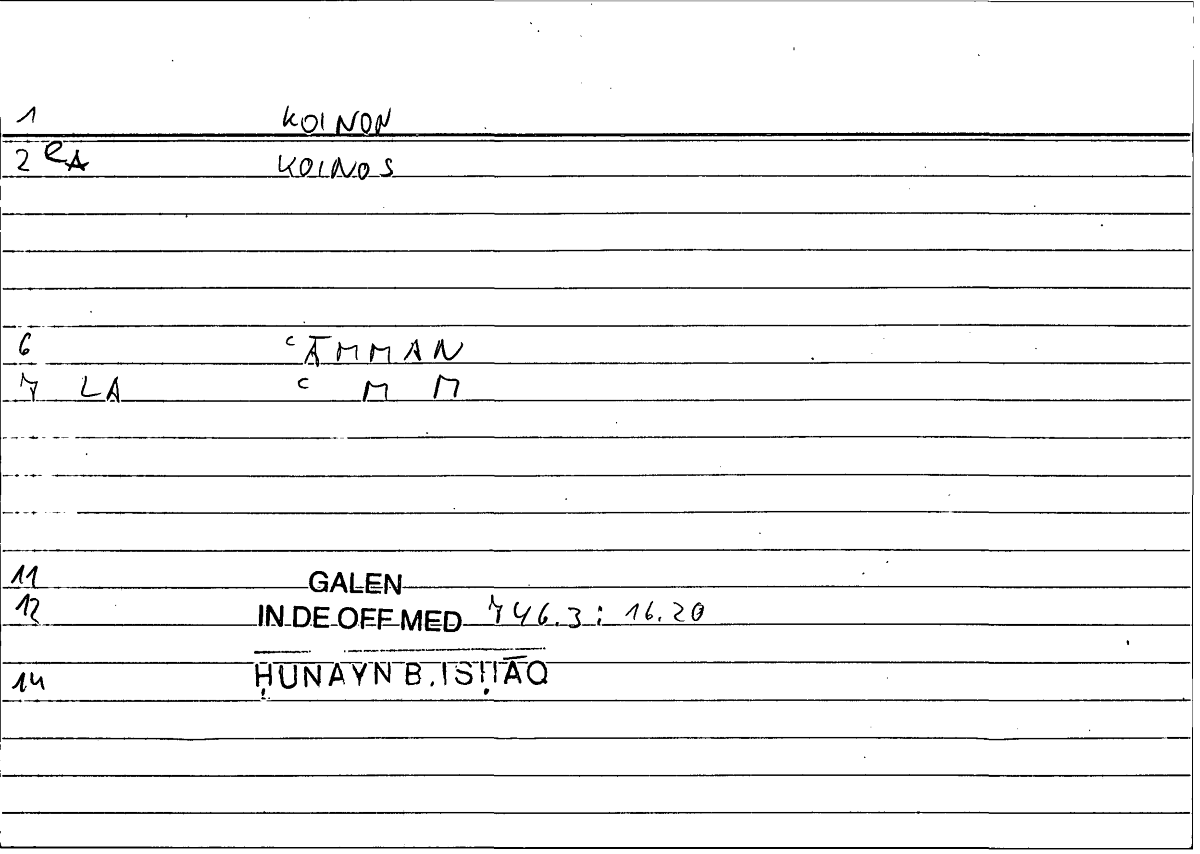 1 KOINON
2 eA KOINOS
6 ʿĀMMAN
7 LA ʿ M M
11 GALEN
12 IN DE OFF MED 746.3 : 16.20
14 ḤUNAYN B. ISḤĀQ